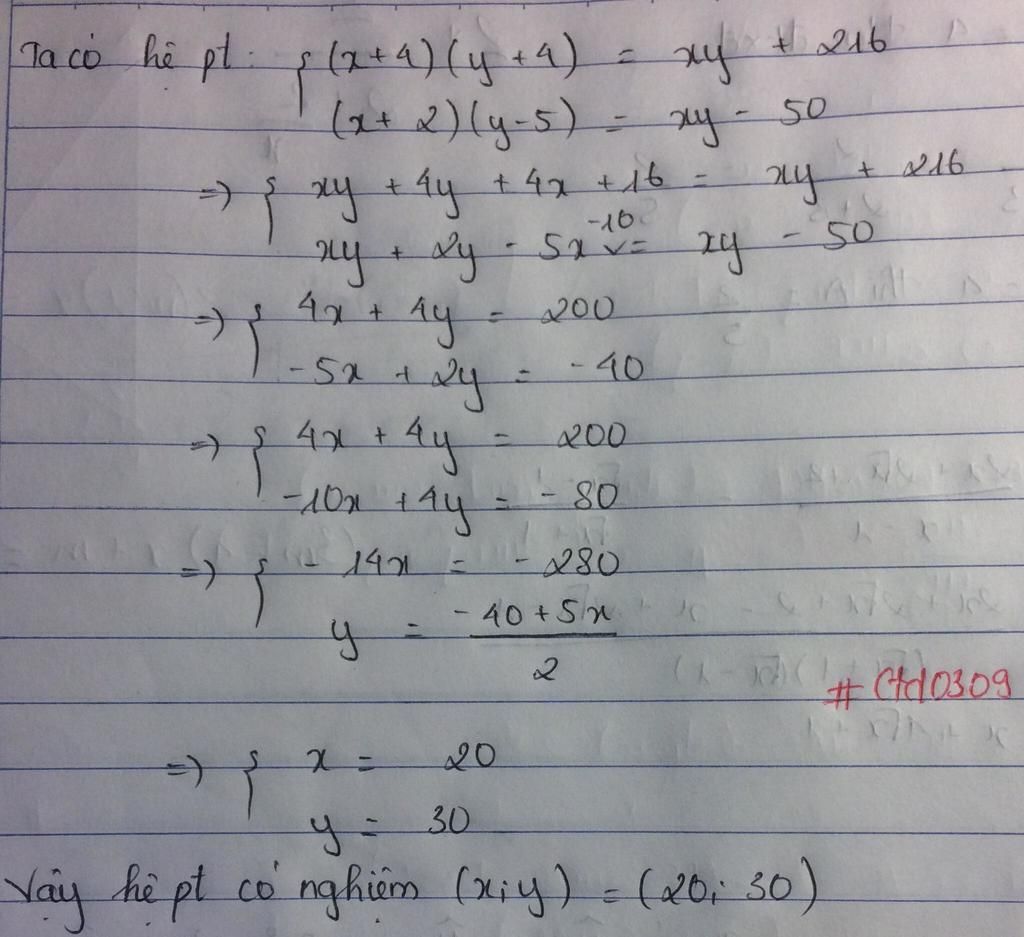 Ta có hệ pt: { (x+4)(y+4) = xy + 216
(x+2)(y-5) = xy - 50
=> { xy + 4y + 4x + 16 = xy + 216
xy + 2y - 5x -10 = xy - 50
=> { 4x + 4y = 200
-5x + 2y = -40
=> { 4x + 4y = 200
-10x + 4y = -80
=> { -14x = -280
y = \frac{-40+5x}{2}
#Ctd0309
=> { x = 20
y = 30
Vậy hệ pt có nghiệm (x;y) = (20; 30)